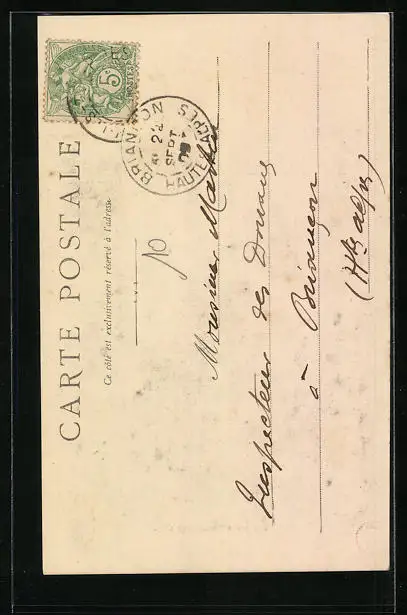 CARTE POSTALE
Ce côté est exclusivement réservé à l'adresse
5c
POSTES
BRIANÇON
22
SEPT
HAUTES ALPES
10
Monsieur
Inspecteur des Douanes
à Briançon
(Htes alpes)